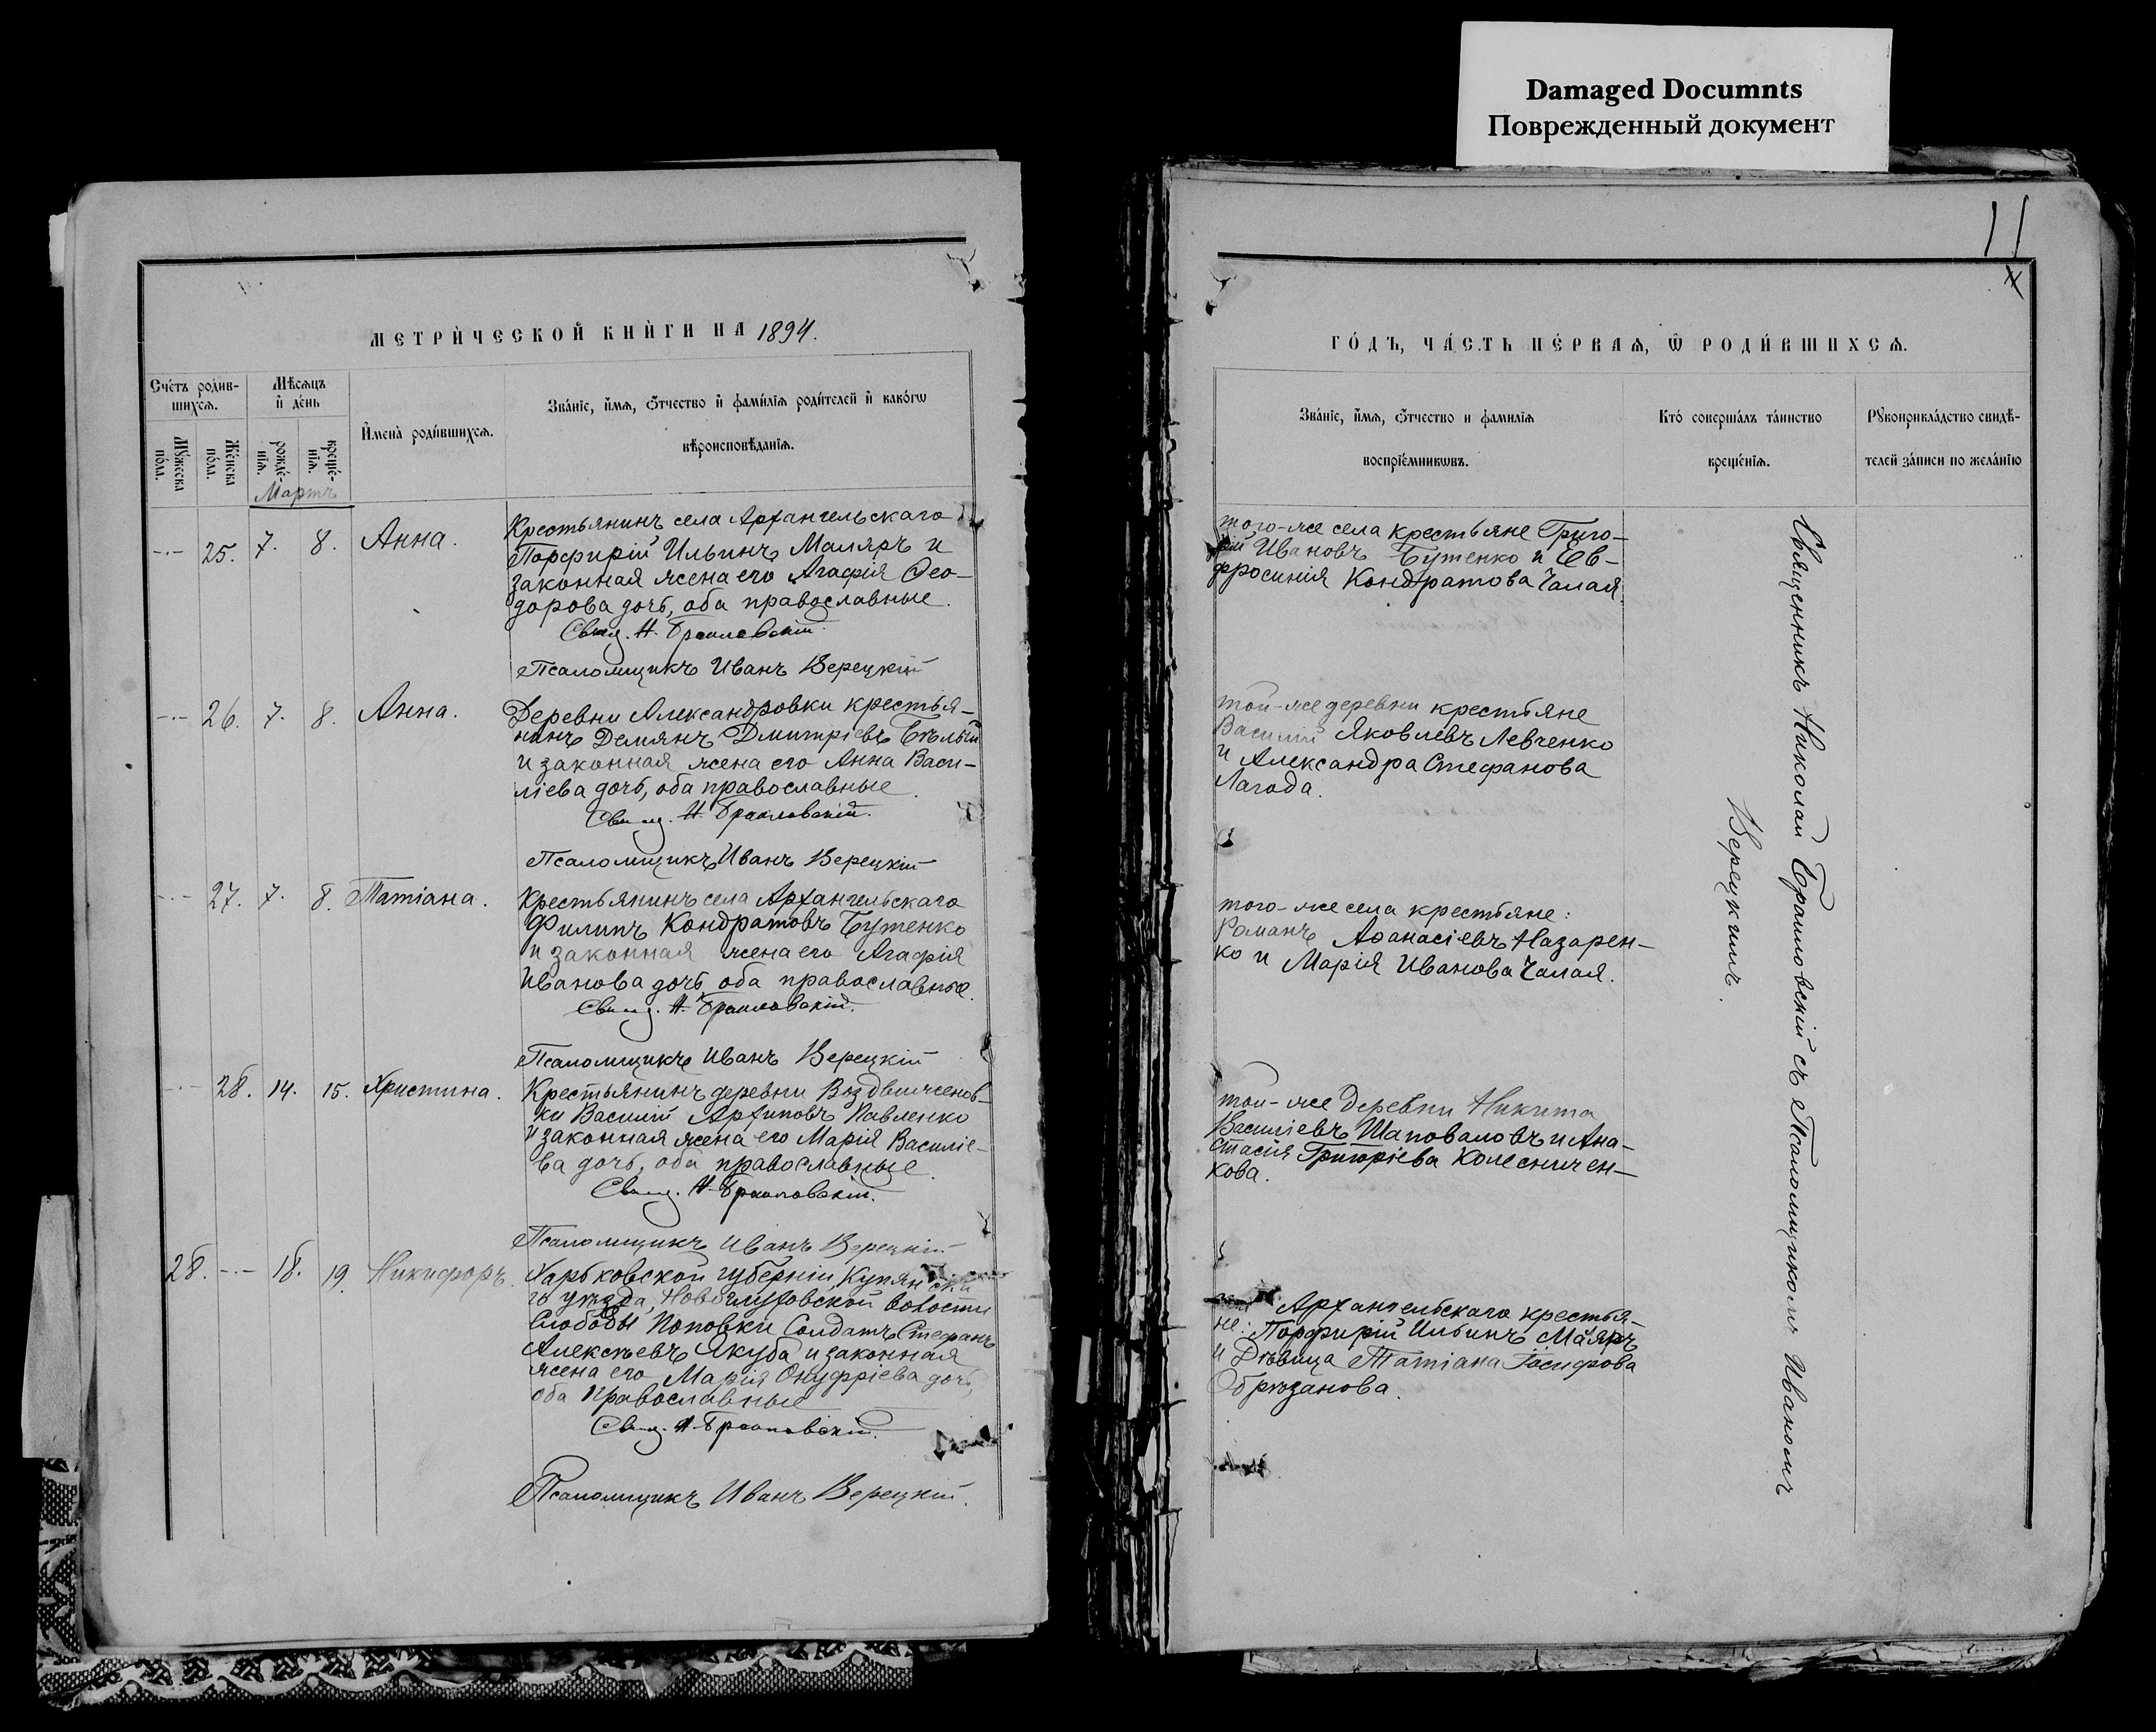 Damaged Documnts
Поврежденный документ
МЕТРИЧЕСКОЙ КНИГИ НА 1894.
Счетъ родив-
шихся.
Мѣсяцъ
и день
Мужеска
пола.
Женска
пола.
рожде-
нія.
креще-
нія.
Имена родившихся.
Званіе, имя, отчество и фамилія родителей и какогѡ
вѣроисповѣданія.
Мартъ
25. 7. 8. Анна.
Крестьянинъ села Архангельскаго
Порфирій Ильинъ Маляръ и
законная жена его Агафія Ѳео-
дорова дочь, оба православные.
Свящ. Н. Браиловскій.
Псаломщикъ Иванъ Верецкій
26. 7. 8. Анна.
Деревни Александровки крестья-
нинъ Демянъ Дмитріевъ Бѣлый
и законная жена его Анна Васи-
ліева дочь, оба православные.
Свящ. Н. Браиловскій.
Псаломщикъ Иванъ Верецкій
27. 7. 8. Татіана.
Крестьянинъ села Архангельскаго
Филипъ Кондратовъ Бутенко
и законная жена его Агафія
Иванова дочь, оба православные.
Свящ. Н. Браиловскій.
Псаломщикъ Иванъ Верецкій
28. 14. 15. Христина.
Крестьянинъ деревни Воздвиженов-
ки Василій Архиповъ Павленко
и законная жена его Марія Василіе-
ва дочь, оба православные.
Свящ. Н. Браиловскій.
Псаломщикъ Иванъ Верецкій
28. 18. 19. Никифоръ.
Харьковской губерніи, Купянска
го уѣзда, Новоглуховской волости
Слободы Поповки Солдатъ Стефанъ
Алексѣевъ Якуба и законная
жена его Марія Онуфріева дочь,
оба православные
Свящ. Н. Браиловскій.
Псаломщикъ Иванъ Верецкій.
11
ГОДЪ, ЧАСТЬ ПЕРВАЯ, Ѡ РОДИВШИХСЯ.
Званіе, имя, отчество и фамилія
воспріемникѡвъ.
Кто совершалъ таинство
крещенія.
Рукоприкладство свидѣ-
телей записи по желанію
того-же села крестьяне Григо-
рій Ивановъ Бутенко и Ев-
фросинія Кондратова Чалая.
той-же деревни крестьяне
Василій Яковлевъ Левченко
и Александра Стефанова
Лагода.
того-же села крестьяне:
Романъ Аѳанасіевъ Назарен-
ко и Марія Иванова Чалая.
той-же деревни Никита
Василіевъ Шаповаловъ и Ана-
стасія Григоріева Колесничен-
кова.
Архангельскаго крестья-
не: Порфирій Ильинъ Маляръ
и Дѣвица Татіана Іосифова
Обрѣзанова.
Священникъ Николай Браиловскій съ Псаломщикомъ Иваномъ
Верецкимъ.